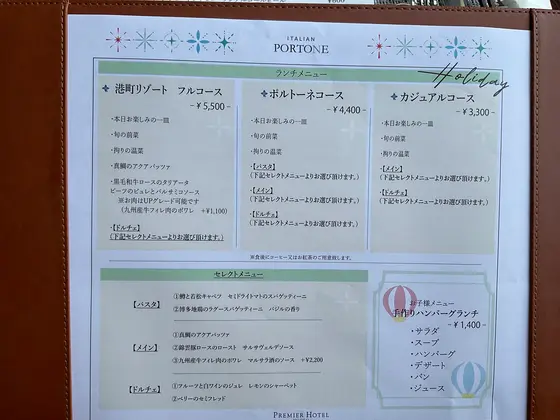 ITALIAN
PORTONE
Holiday
ランチメニュー
港町リゾート フルコース
-￥5,500-
・本日お楽しみの一皿
・旬の前菜
・拘りの温菜
・真鯛のアクアパッツァ
・黒毛和牛ロースのタリアータ
ビーツのピュレとバルサミコソース
※お肉はUPグレード可能です
(九州産牛フィレ肉のポワレ +￥1,100)
・【ドルチェ】
(下記セレクトメニューよりお選び頂けます。)
ポルトーネコース
-￥4,400-
・本日お楽しみの一皿
・旬の前菜
・拘りの温菜
・【パスタ】
(下記セレクトメニューよりお選び頂けます。)
・【メイン】
(下記セレクトメニューよりお選び頂けます。)
・【ドルチェ】
(下記セレクトメニューよりお選び頂けます。)
カジュアルコース
-￥3,300-
・本日お楽しみの一皿
・旬の前菜
・拘りの温菜
・【メイン】
(下記セレクトメニューよりお選び頂けます。)
・【ドルチェ】
(下記セレクトメニューよりお選び頂けます。)
※食後にコーヒー又はお紅茶のご用意致します。
セレクトメニュー
【パスタ】
①鱒と若松キャベツ セミドライトマトのスパゲッティーニ
②博多地鶏のラグースパゲッティーニ バジルの香り
【メイン】
①真鯛のアクアパッツァ
②錦雲豚ロースのロースト サルサヴェルデソース
③九州産牛フィレ肉のポワレ マルサラ酒のソース +￥2,200
【ドルチェ】
①フルーツと白ワインのジュレ レモンのシャーベット
②ベリーのセミフレッド
お子様メニュー
手作りハンバーグランチ
-￥1,400-
・サラダ
・スープ
・ハンバーグ
・デザート
・パン
・ジュース
PREMIER HOTEL